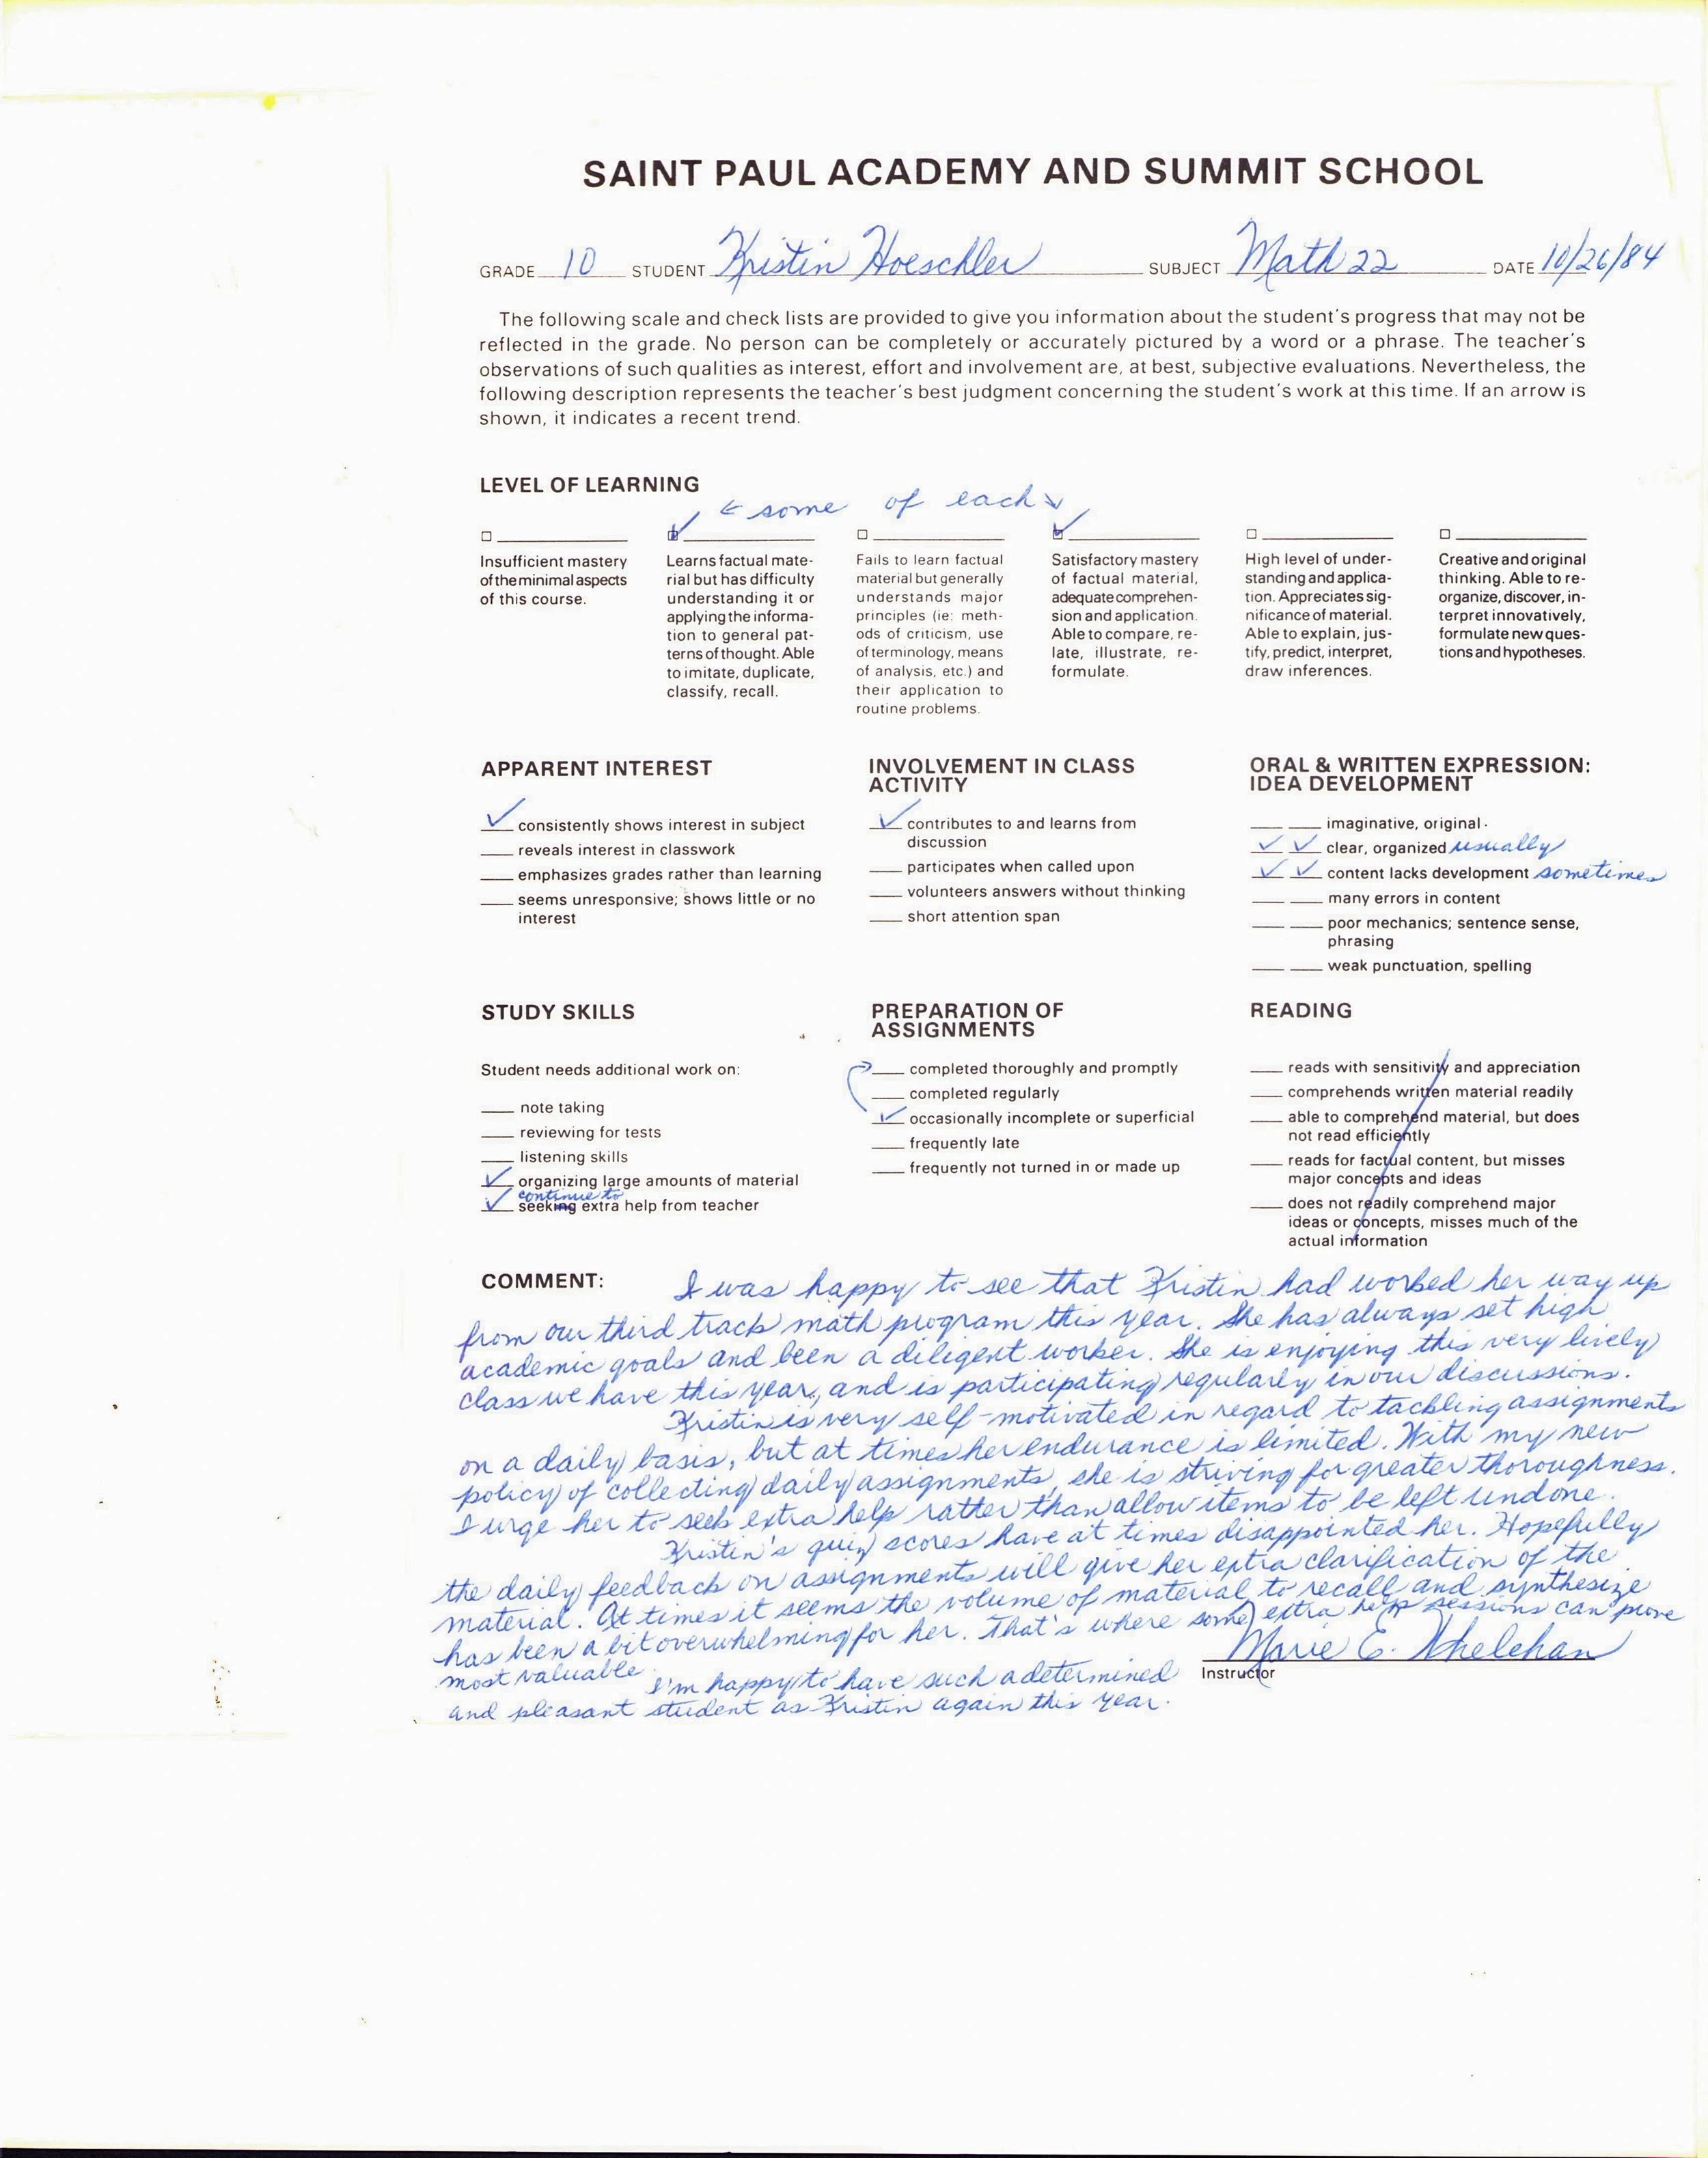 SAINT PAUL ACADEMY AND SUMMIT SCHOOL
GRADE 10 STUDENT Kristin Hoeschler SUBJECT Math 22 DATE 10/26/84
The following scale and check lists are provided to give you information about the student's progress that may not be
reflected in the grade. No person can be completely or accurately pictured by a word or a phrase. The teacher's
observations of such qualities as interest, effort and involvement are, at best, subjective evaluations. Nevertheless, the
following description represents the teacher's best judgment concerning the student's work at this time. If an arrow is
shown, it indicates a recent trend.
LEVEL OF LEARNING
← some of each ↘
Insufficient mastery
of the minimal aspects
of this course.
Learns factual mate-
rial but has difficulty
understanding it or
applying the informa-
tion to general pat-
terns of thought. Able
to imitate, duplicate,
classify, recall.
Fails to learn factual
material but generally
understands major
principles (ie: meth-
ods of criticism, use
of terminology, means
of analysis, etc.) and
their application to
routine problems.
Satisfactory mastery
of factual material,
adequate comprehen-
sion and application.
Able to compare, re-
late, illustrate, re-
formulate.
High level of under-
standing and applica-
tion. Appreciates sig-
nificance of material.
Able to explain, jus-
tify, predict, interpret,
draw inferences.
Creative and original
thinking. Able to re-
organize, discover, in-
terpret innovatively,
formulate new ques-
tions and hypotheses.
APPARENT INTEREST
✓ consistently shows interest in subject
reveals interest in classwork
emphasizes grades rather than learning
seems unresponsive; shows little or no
interest
INVOLVEMENT IN CLASS
ACTIVITY
✓ contributes to and learns from
discussion
participates when called upon
volunteers answers without thinking
short attention span
ORAL & WRITTEN EXPRESSION:
IDEA DEVELOPMENT
imaginative, original
✓ ✓ clear, organized usually
✓ ✓ content lacks development sometimes
many errors in content
poor mechanics; sentence sense,
phrasing
weak punctuation, spelling
STUDY SKILLS
Student needs additional work on:
note taking
reviewing for tests
listening skills
✓ organizing large amounts of material
continue to
✓ seeking extra help from teacher
PREPARATION OF
ASSIGNMENTS
completed thoroughly and promptly
completed regularly
✓ occasionally incomplete or superficial
frequently late
frequently not turned in or made up
READING
reads with sensitivity and appreciation
comprehends written material readily
able to comprehend material, but does
not read efficiently
reads for factual content, but misses
major concepts and ideas
does not readily comprehend major
ideas or concepts, misses much of the
actual information
COMMENT: I was happy to see that Kristin had worked her way up
from our third track math program this year. She has always set high
academic goals and been a diligent worker. She is enjoying this very lively
class we have this year, and is participating regularly in our discussions.
Kristin is very self-motivated in regard to tackling assignments
on a daily basis, but at times her endurance is limited. With my new
policy of collecting daily assignments, she is striving for greater thoroughness.
I urge her to seek extra help rather than allow items to be left undone.
Kristin's quiz scores have at times disappointed her. Hopefully
the daily feedback on assignments will give her extra clarification of the
material. At times it seems the volume of material to recall and synthesize
has been a bit overwhelming for her. That's where some extra help sessions can prove
most valuable.
I'm happy to have such a determined
and pleasant student as Kristin again this year.
Marie E. Whelehan
Instructor